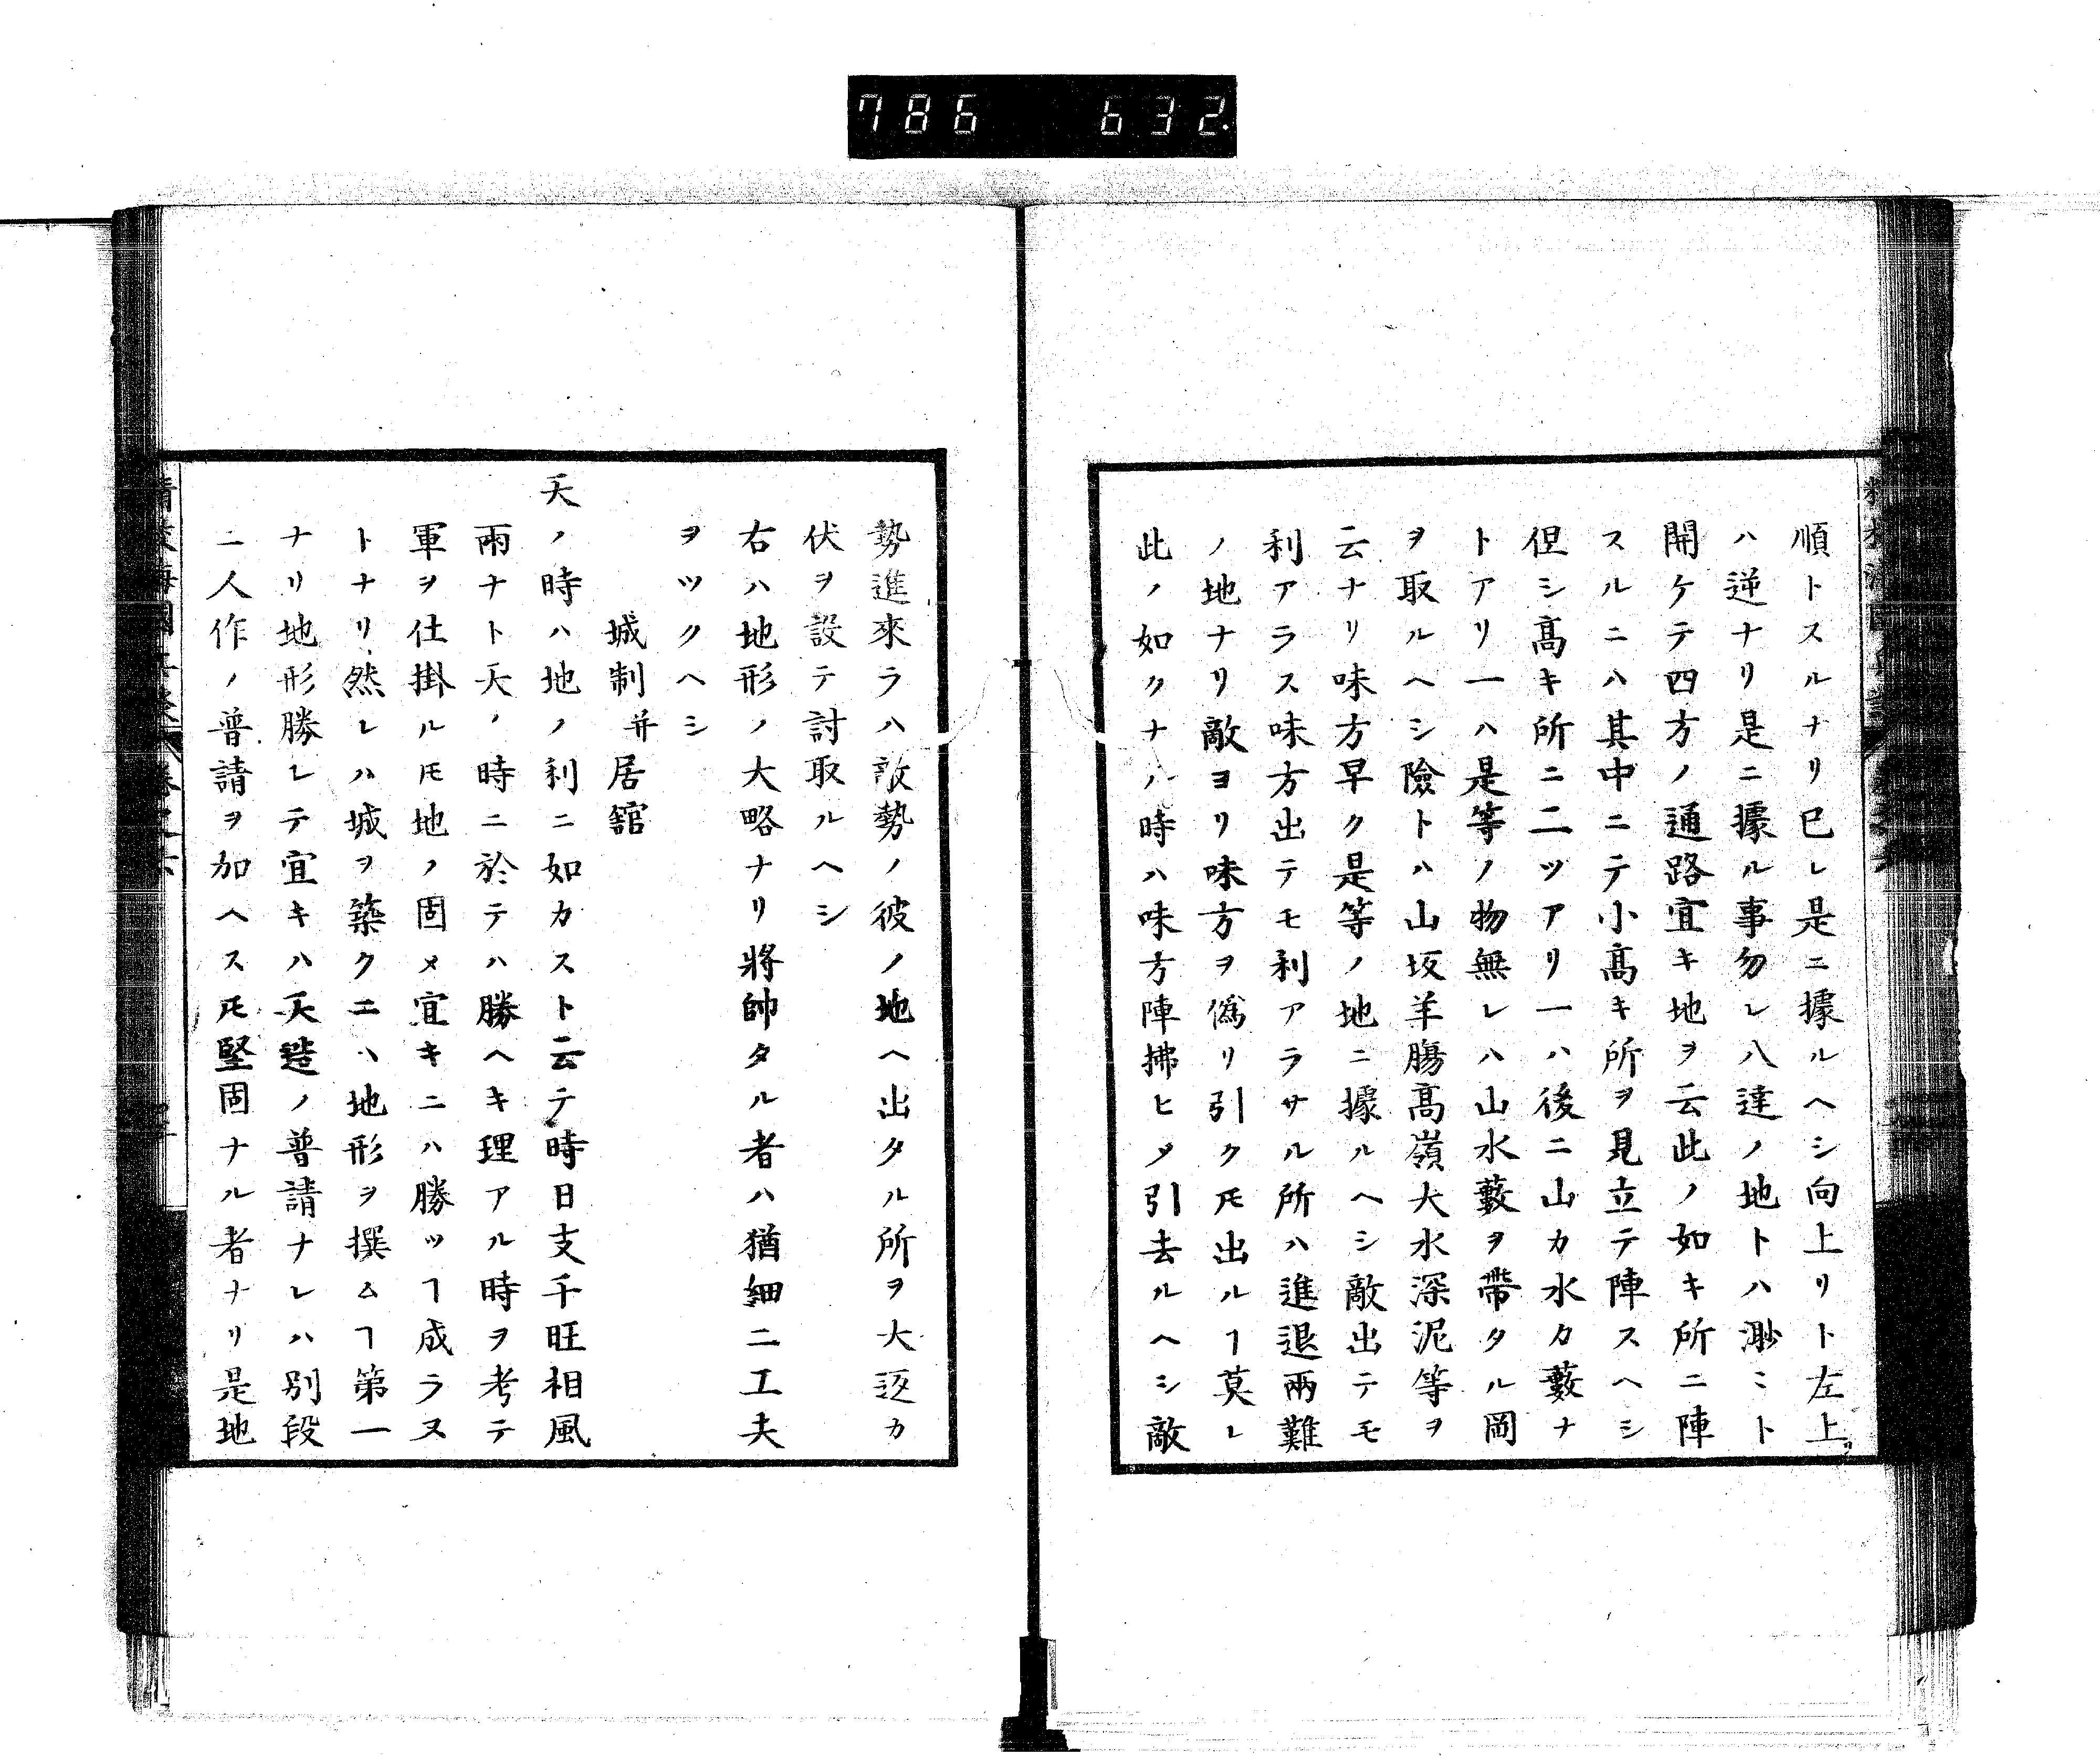 786 632
順トスルナリ已レ是ニ據ルヘシ向上リト左上リ
ハ逆ナリ是ニ據ル事勿レ八達ノ地トハ渺ミト
開ケテ四方ノ通路宜キ地ヲ云此ノ如キ所ニ陣
スルニハ其中ニテ小高キ所ヲ見立テ陣スヘシ
但シ高キ所ニ二ツアリ一ハ後ニ山カ水カ藪ナ
トアリ一ハ是等ノ物無レハ山水藪ヲ帶タル岡
ヲ取ルヘシ險トハ山坂羊膓高嶺大水深泥等ヲ
云ナリ味方早ク是等ノ地ニ據ルヘシ敵出テモ
利アラス味方出テモ利アラサル所ハ進退兩難
ノ地ナリ敵ヨリ味方ヲ僞リ引クモ出ルヿ莫レ
此ノ如クナル時ハ味方陣拂ヒ〆引去ルヘシ敵
勢進來ラハ敵勢ノ彼ノ地ヘ出タル所ヲ大返カ
伏ヲ設テ討取ルヘシ
右ハ地形ノ大略ナリ將帥タル者ハ猶細ニ工夫
ヲツクヘシ
城制并居舘
天ノ時ハ地ノ利ニ如カスト云テ時日支干旺相風
雨ナト天ノ時ニ於テハ勝ヘキ理アル時ヲ考テ
軍ヲ仕掛ルモ地ノ固メ宜キニハ勝ツヿ成ラヌ
トナリ然レハ城ヲ築クニハ地形ヲ撰ムヿ第一
ナリ地形勝レテ宜キハ天造ノ普請ナレハ別段
ニ人作ノ普請ヲ加ヘスモ堅固ナル者ナリ是地